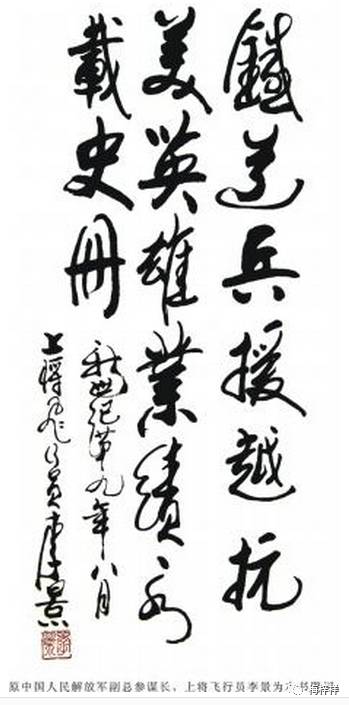 鐵道兵援越抗
美英雄業績永
載史冊
新世纪第九年八月
上將飞行員李景
原中国人民解放军副总参谋长、上将飞行员李景为